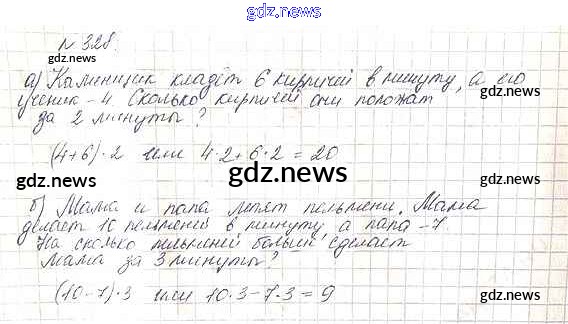 gdz.news
№ 328.
а) Каменщик кладёт 6 кирпичей в минуту, а его
ученик - 4. Сколько кирпичей они положат
за 2 минуты?
(4+6)·2 или 4·2+6·2=20
gdz.news
gdz.news
gdz.news
б) Мама и папа лепят пельмени. Мама
делает 10 пельменей в минуту, а папа - 7.
На сколько пельменей больше сделает
мама за 3 минуты?
(10-7)·3 или 10·3-7·3=9
gdz.news
gdz.news